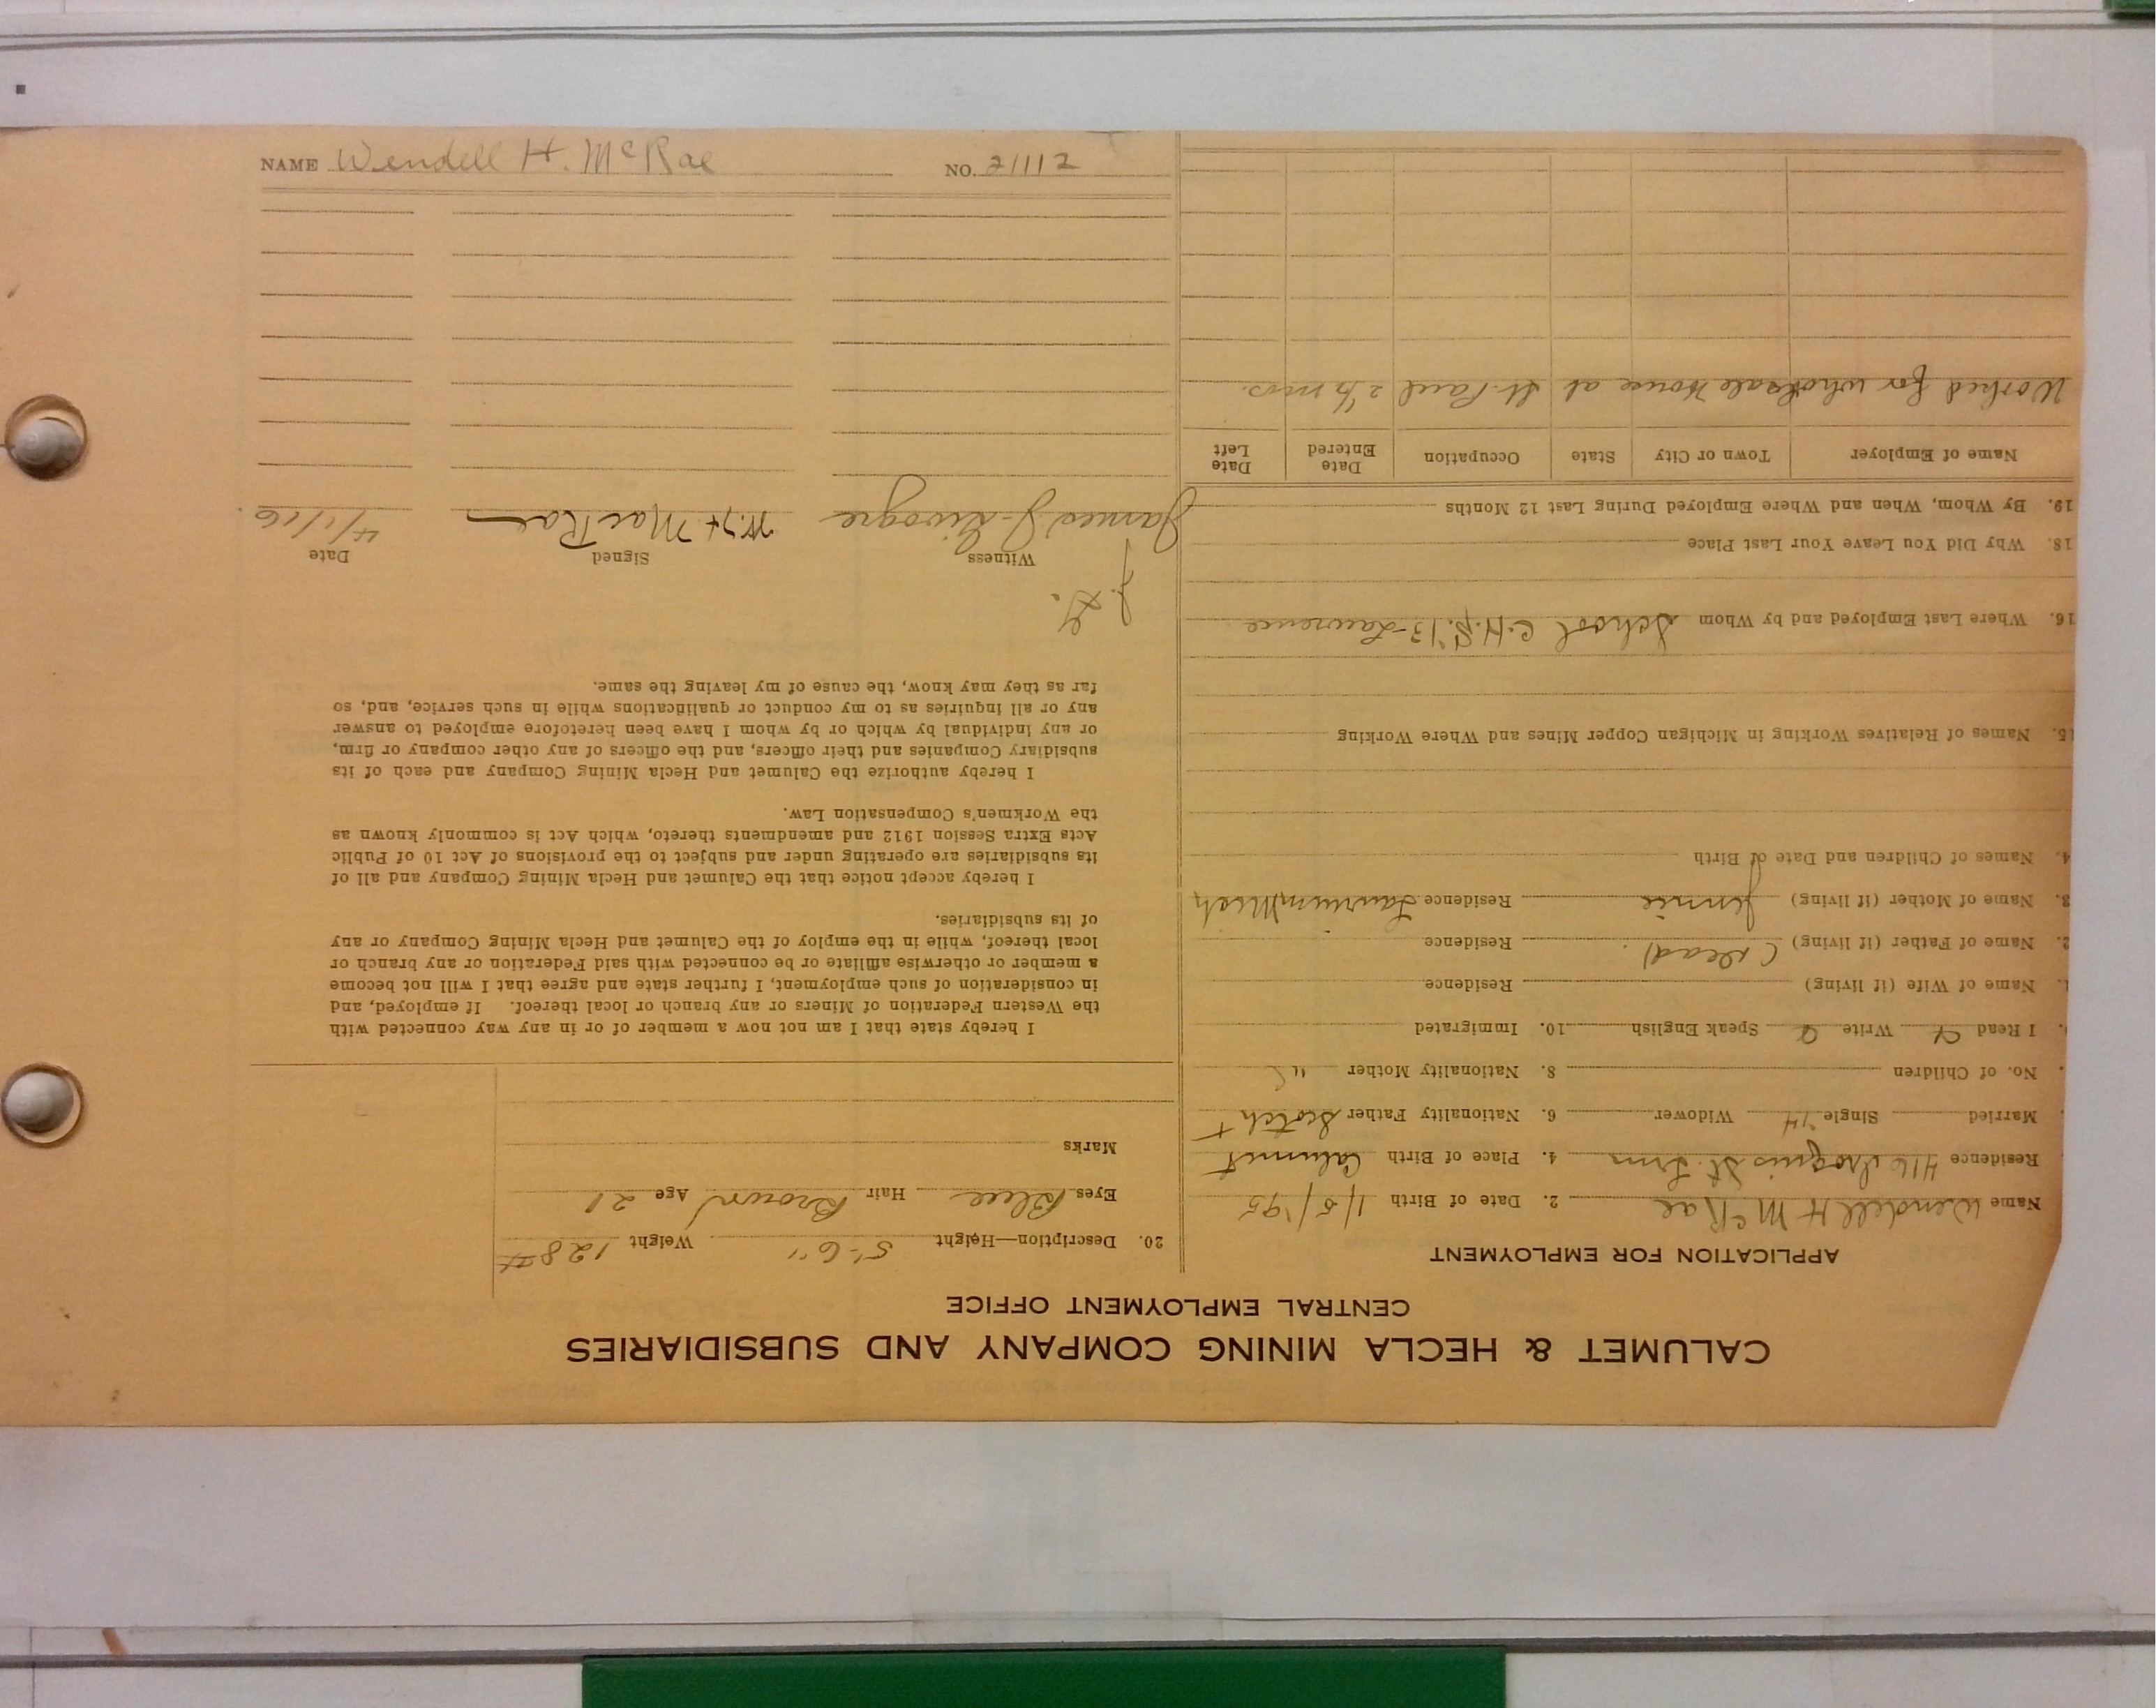 CALUMET & HECLA MINING COMPANY AND SUBSIDIARIES
CENTRAL EMPLOYMENT OFFICE
APPLICATION FOR EMPLOYMENT
Name Wendell H McRae 2. Date of Birth 1/5/'95
Residence 416 Iroquois St. Lrm 4. Place of Birth Calumet
Married Single Widower 6. Nationality Father Scotch
No. of Children 8. Nationality Mother "
I Read Write Speak English 10. Immigrated
1. Name of Wife (if living) Residence
2. Name of Father (if living) (Dead) Residence
3. Name of Mother (if living) Jennie Residence Laurium Mich
4. Names of Children and Date of Birth
15. Names of Relatives Working in Michigan Copper Mines and Where Working
16. Where Last Employed and by Whom School C.H.S. '13-Lawrence
18. Why Did You Leave Your Last Place
19. By Whom, When and Where Employed During Last 12 Months
Name of Employer Town or City State Occupation Date Entered Date Left
Worked for wholesale House at St. Paul 2½ mos.
20. Description—Height 5'-6" Weight 128#
Eyes Blue Hair Brown Age 21
Marks
I hereby state that I am not now a member of or in any way connected with
the Western Federation of Miners or any branch or local thereof. If employed, and
in consideration of such employment, I further state and agree that I will not become
a member or otherwise affiliate or be connected with said Federation or any branch or
local thereof, while in the employ of the Calumet and Hecla Mining Company or any
of its subsidiaries.
I hereby accept notice that the Calumet and Hecla Mining Company and all of
its subsidiaries are operating under and subject to the provisions of Act 10 of Public
Acts Extra Session 1912 and amendments thereto, which Act is commonly known as
the Workmen's Compensation Law.
I hereby authorize the Calumet and Hecla Mining Company and each of its
subsidiary Companies and their officers, and the officers of any other company or firm,
or any individual by which or by whom I have been heretofore employed to answer
any or all inquiries as to my conduct or qualifications while in such service, and, so
far as they may know, the cause of my leaving the same.
Witness Signed Date
James J. W. H. MacRae 4/1/16
NAME Wendell H. McRae NO. 21112